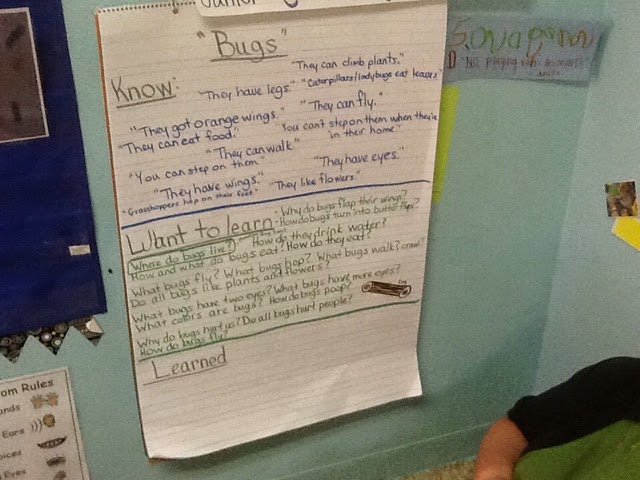 "Bugs"
Know:
"They can climb plants."
"They have legs." "Caterpillars/ladybugs eat leaves"
"They got orange wings." "They can fly."
"They can eat food." "You can't step on them when they're in their home"
"They can walk"
"You can step on them" "They have eyes."
"They have wings." "They like flowers."
"Grasshoppers hop on their feet."
Want to learn: Why do bugs flap their wings?
How do bugs turn into butterflies?
Where do bugs live? How do they drink water?
How and what do bugs eat? How do they eat?
What bugs fly? What bugs hop? What bugs walk? crawl?
Do all bugs like plants and flowers?
What bugs have two eyes? What bugs have more eyes?
What colors are bugs? How do bugs poop?
Why do bugs hurt us? Do all bugs hurt people?
How do bugs fly?
Learned
om Rules
ands
Ears
oices
Eyes